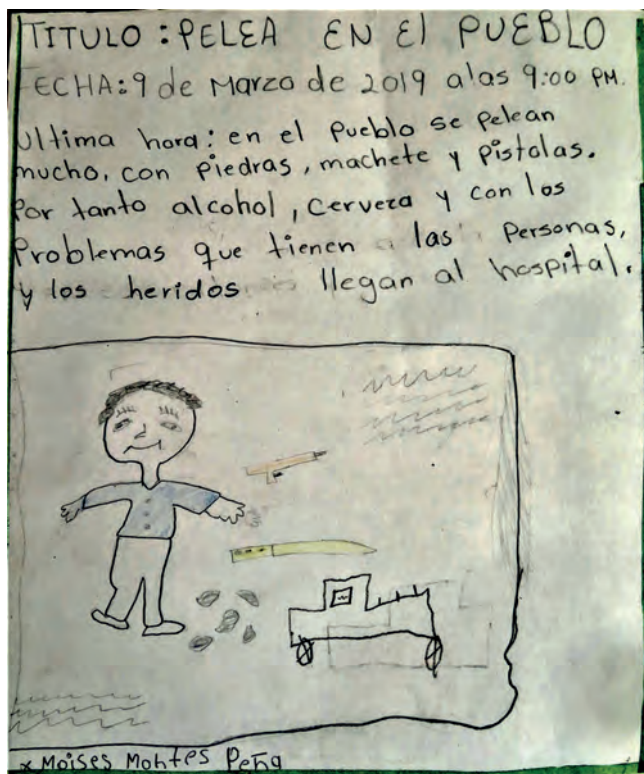 TITULO: PELEA EN El PUEBLO
FECHA: 9 de Marzo de 2019 a las 9:00 PM.
Ultima hora: en el Pueblo se pelean
mucho, con piedras, machete y pistolas.
Por tanto alcohol, cerveza y con los
Problemas que tienen las Personas,
y los heridos llegan al hospital.
x Moises Montes Peña